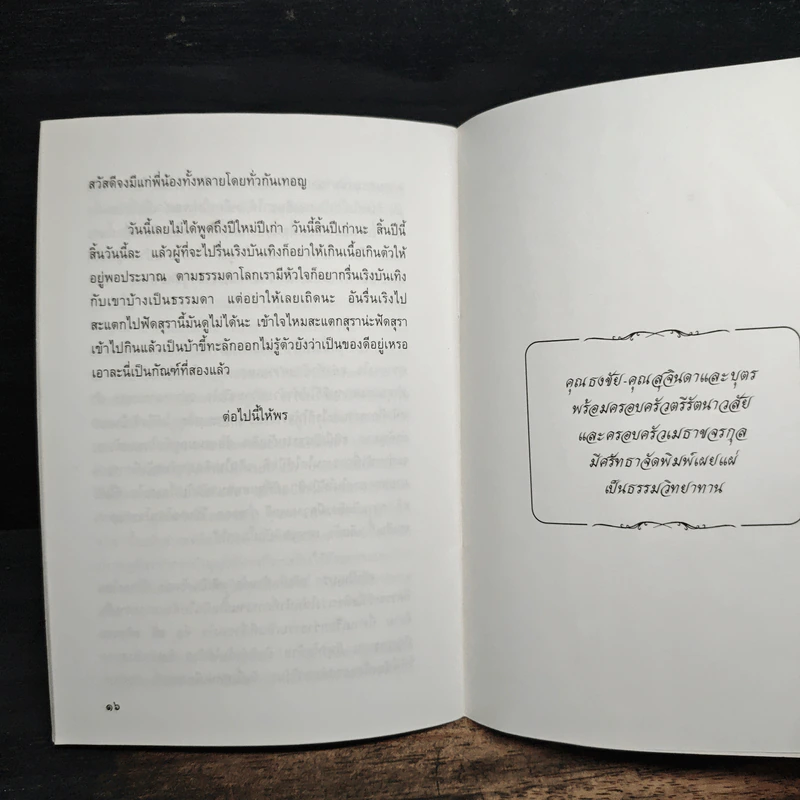 สวัสดีจงมีแก่พี่น้องทั้งหลายโดยทั่วกันเทอญ
วันนี้เลยไม่ได้พูดถึงปีใหม่ปีเก่า วันนี้สิ้นปีเก่านะ สิ้นปีนี้
สิ้นวันนี้ละ แล้วผู้ที่จะไปรื่นเริงบันเทิงก็อย่าให้เกินเนื้อเกินตัวให้
อยู่พอประมาณ ตามธรรมดาโลกเรามีหัวใจก็อยากรื่นเริงบันเทิง
กับเขาบ้างเป็นธรรมดา แต่อย่าให้เลยเถิดนะ อันรื่นเริงไป
สะแตกไปฟัดสุรานี้มันดูไม่ได้นะ เข้าใจไหมสะแตกสุราน่ะฟัดสุรา
เข้าไปกินแล้วเป็นบ้าขี้ทะลักออกไม่รู้ตัวยังว่าเป็นของดีอยู่เหรอ
เอาละนี่เป็นกัณฑ์ที่สองแล้ว
ต่อไปนี้ให้พร
๑๖
คุณธงชัย-คุณสุจินดาและบุตร
พร้อมครอบครัวตรีรัตนาวลัย
และครอบครัวเมธาชจรกุล
มีศรัทธาจัดพิมพ์เผยแผ่
เป็นธรรมวิทยาทาน